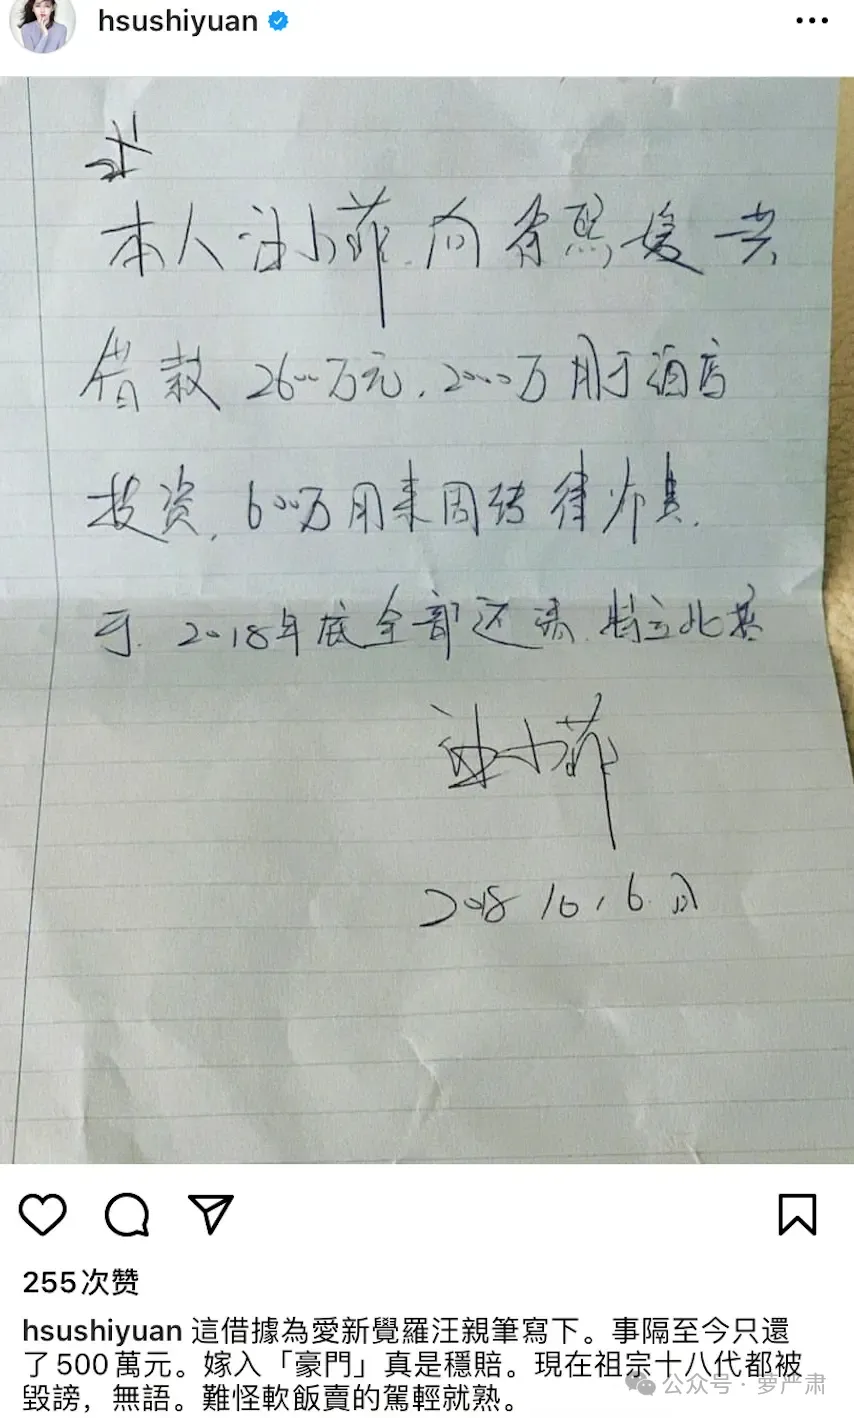 hsushiyuan
本人汪小菲.向徐熙媛共
借款2600万元.2000万用于酒店
投资.600万用来周转律师费.
于.2018年底全部还清.特立此据
汪小菲
2018 10,6.
255次赞
hsushiyuan 這借據為愛新覺羅汪親筆寫下。事隔至今只還
了500萬元。嫁入「豪門」真是穩賠。現在祖宗十八代都被
毀謗，無語。難怪軟飯賣的駕輕就熟。
公众号·萝严肃